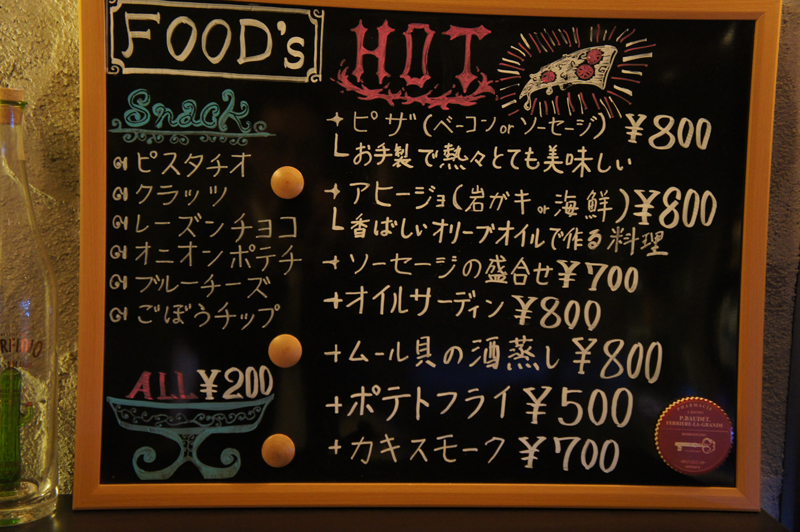 FOOD's
Snack
ピスタチオ
クラッツ
レーズンチョコ
オニオンポテチ
ブルーチーズ
ごぼうチップ
ALL ¥200
HOT
ピザ(ベーコン or ソーセージ) ¥800
お手製で熱々とても美味しい
アヒージョ(岩ガキ or 海鮮) ¥800
香ばしいオリーブオイルで作る料理
ソーセージの盛合せ ¥700
オイルサーディン ¥800
ムール貝の酒蒸し ¥800
ポテトフライ ¥500
カキスモーク ¥700
PHARMACIE
P.BAUDET.
VERRIERE-LA-GRANDE